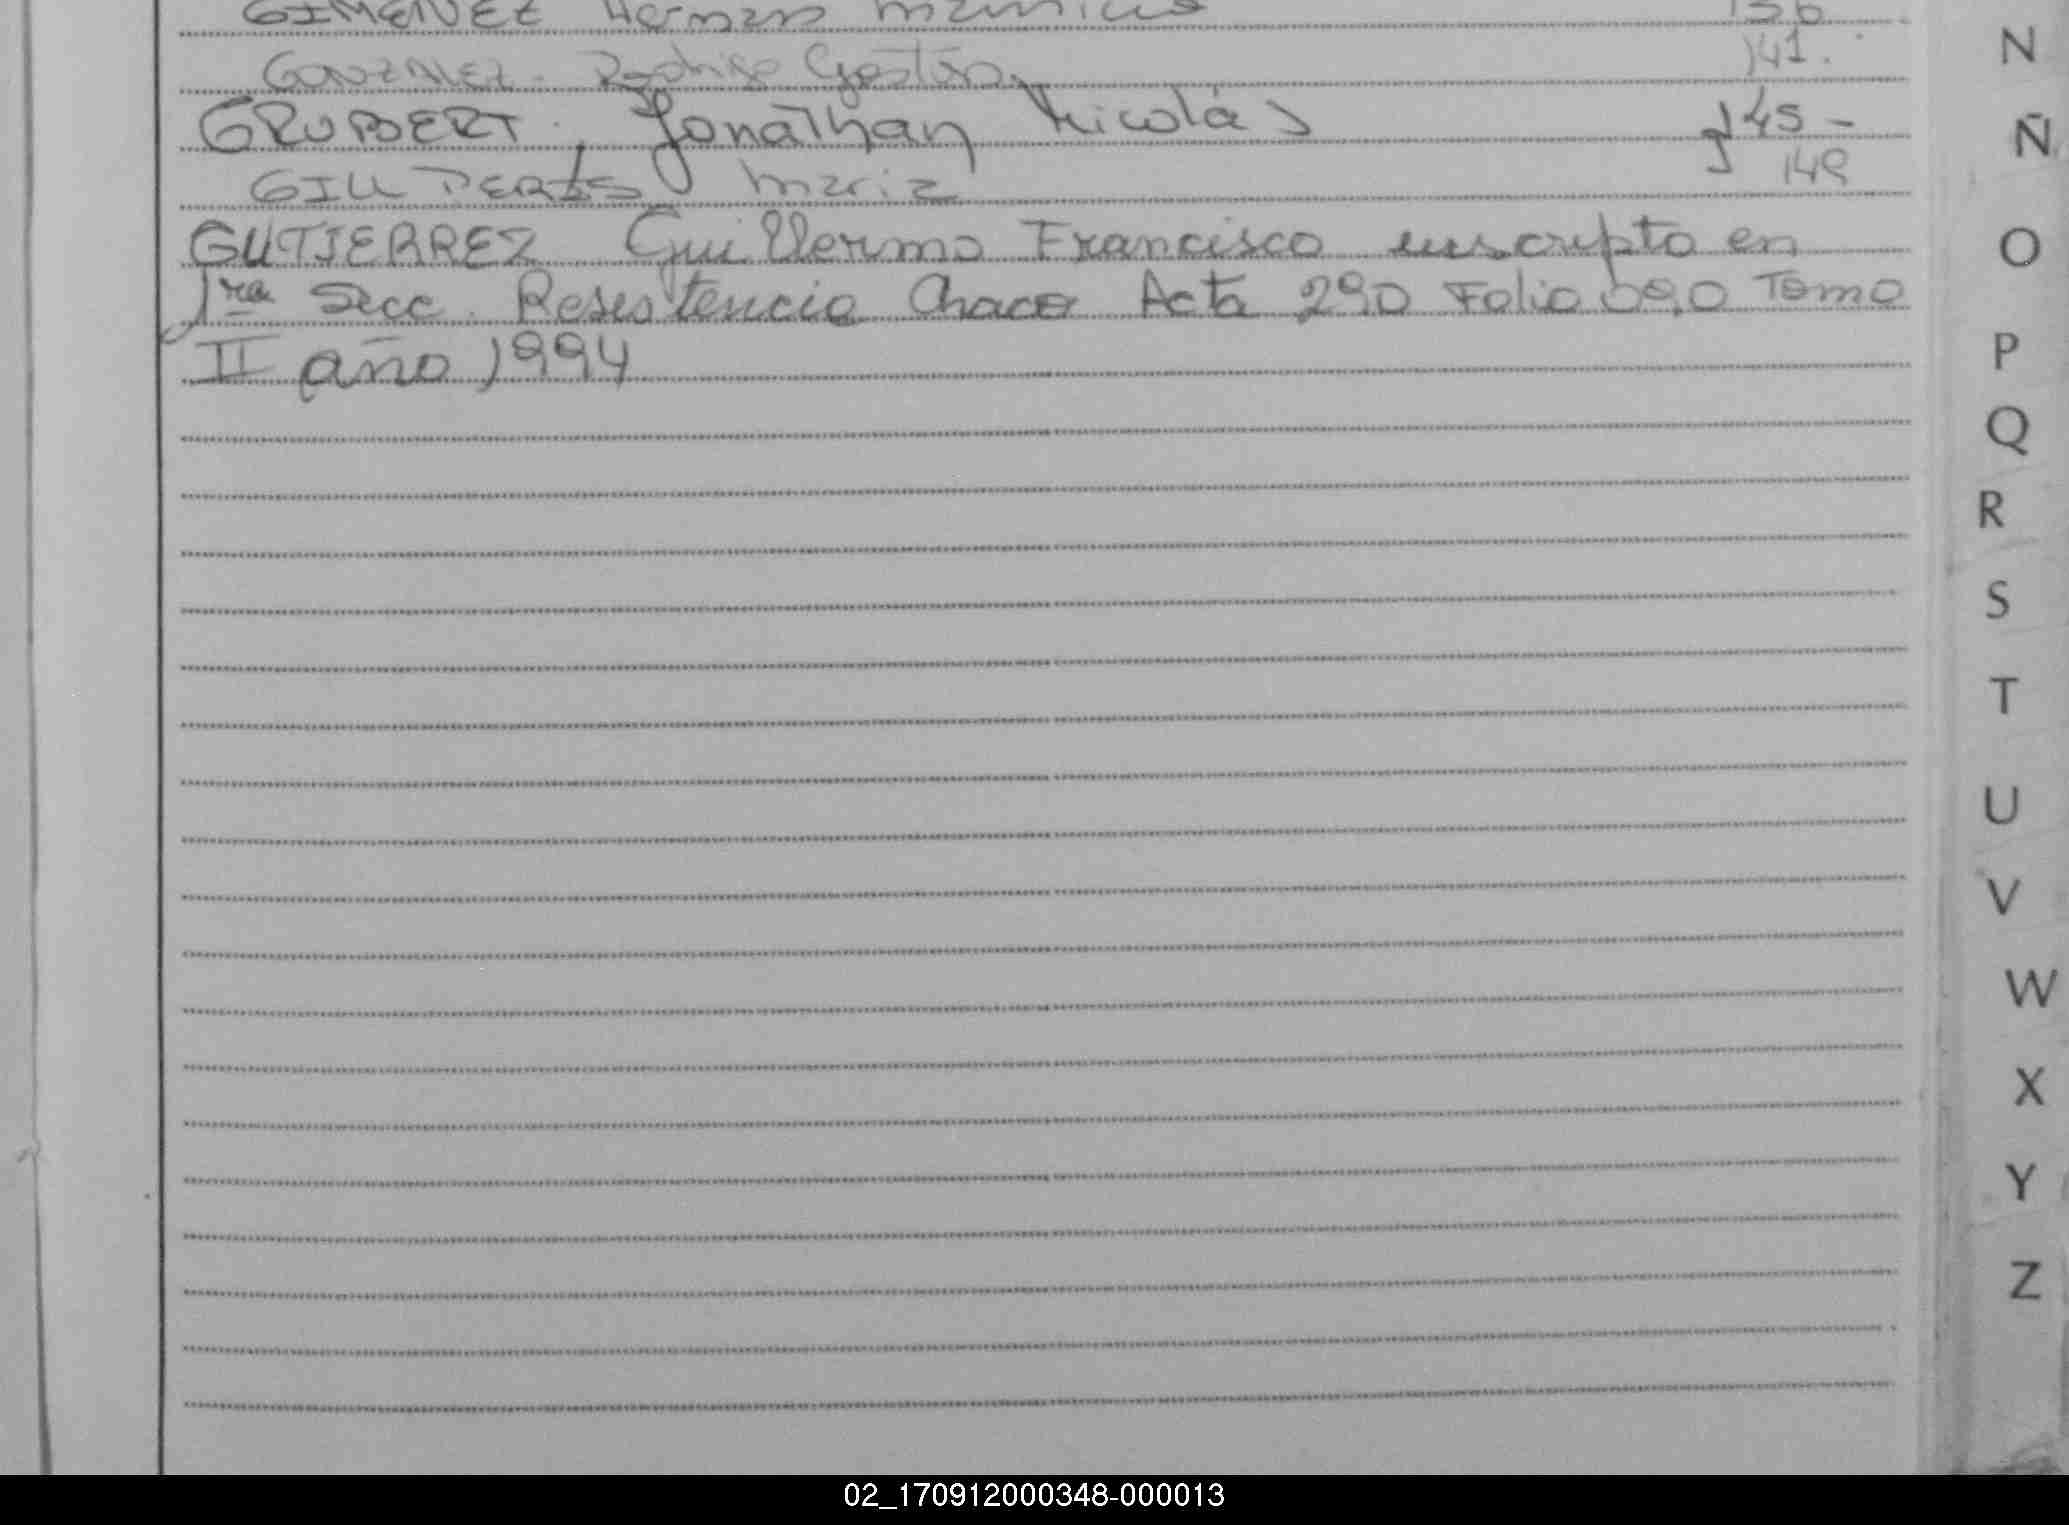 GIMENEZ Hernan Mauricio 136
GONZALEZ - Rodrigo Gastón 141.
GRUBERT. Jonathan Nicolás 145 -
GILL PERIS Maria 149
GUTIERREZ Guillermo Francisco inscripto en
1ra Secc. Resistencia Chaco Acta 290 Folio 090 Tomo
II año 1994
N
Ñ
O
P
Q
R
S
T
U
V
W
X
Y
Z
02_170912000348-000013